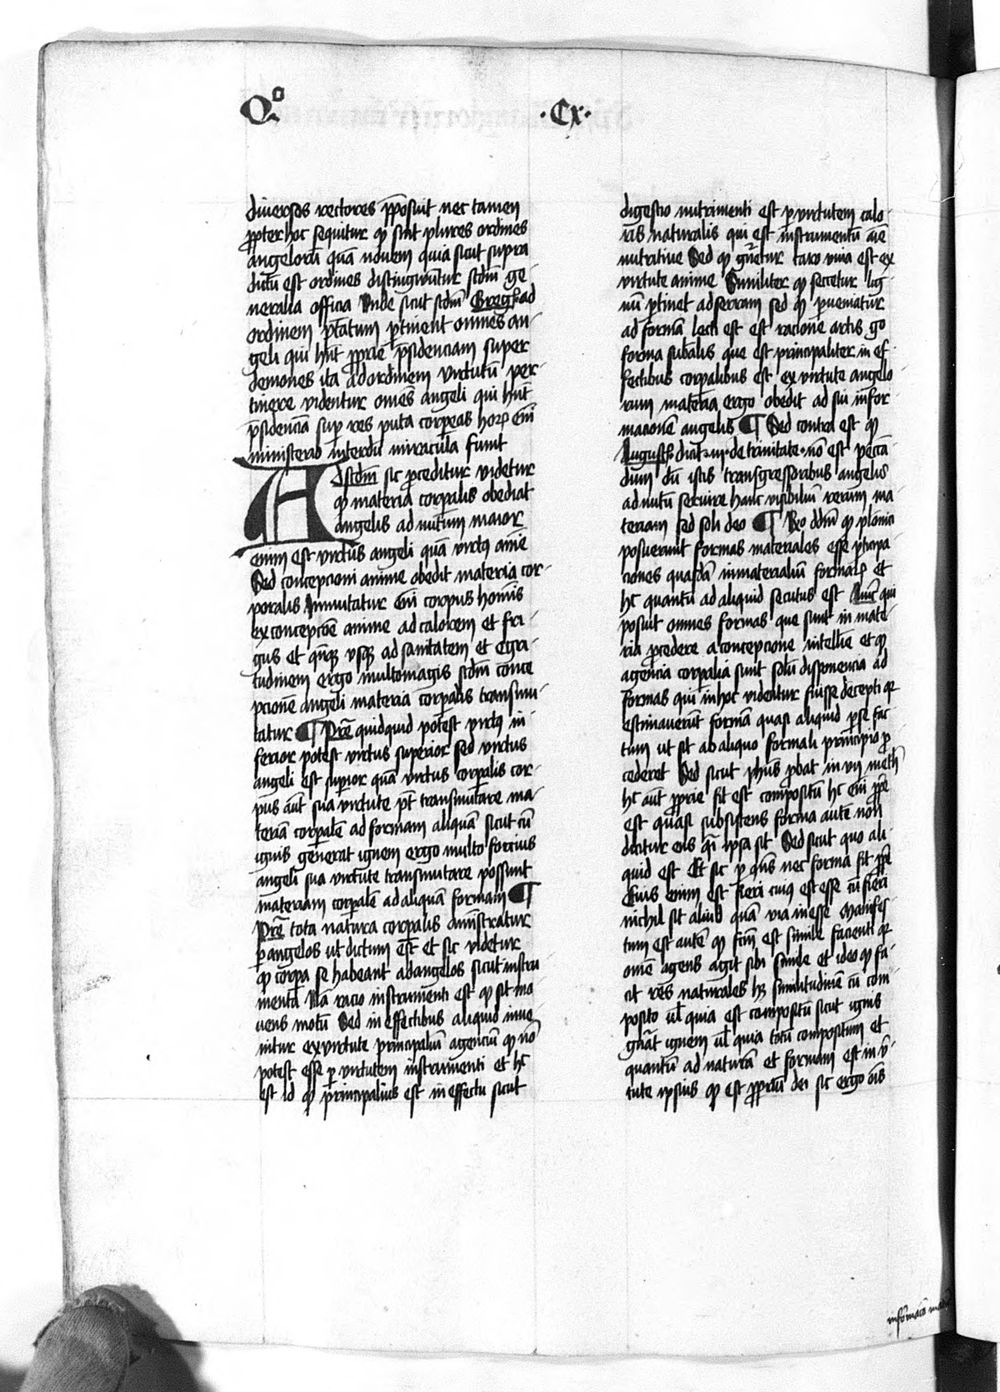 Qo ·Cx·
diversos rectores pposuit nec tamen
ppter hoc sequitur qd sint plures ordines
angelorū quā novem quia sicut supra
dictū est ordines distinguūtur scdm̄ ge-
neralia officia Unde sicut scdm̄ Gregm̄ ad
ordinem ptatum ptinent omnes an-
geli qui hn̄t pprie psidenciam super
demones ita ad ordinem virtutū per-
tinere videntur om̄es angeli qui hn̄t
psidenciā sup res pure corpeas horȝ em̄
ministerio interdū miracula fiunt
Ad scdm̄ sic pceditur videtur
qd materia corpalis obediat
angelis ad nutum maior
enim est virtus angeli quā virtus aīe
Sed concepcioni anime obedit materia cor-
poralis Immutatur em̄ corpus hoīnis
ex concepcōe anime ad calorem et fri-
gus et qn̄qȝ usqȝ ad sanitatem et egri-
tudinem ergo multomagis scdm̄ conce
pcionē angeli materia corpalis transmu-
tatur ¶ Pret̄ quidquid potest virtus in-
ferior potest virtus superior sed virtus
angeli est supior quā virtus corpalis cor-
pus aūt sua virtute pt̄ transmutare ma-
teriā corpalē ad formam aliquā sicut cū
ignis generat ignem ergo multo forcius
angeli sua virtute transmutare possunt
materiam corpalē ad aliquā formam ¶
Pret̄ tota natura corpalis āministratur
p angelos ut dictum est et sic videtur
qd corpa se habeant ad angelos sicut instru-
menta Nā racio instrumenti est qd sit mo
vens motū Sed in effectibus aliquid inve-
nitur ex virtute principaliū agenciū qd nō
potest esse p virtutem instrumenti et hc̄
est id qd principalius est in effectu sicut
digestio nutrimenti est p virtutem calo-
ris naturalis qui est instrumentū aīe
nutritive Sed qd gn̄etur caro viva est ex
virtute anime Similiter qd secetur lig-
nū ptinet ad serram sed qd pveniatur
ad formā lecti est ex racione artis go
forma sub̄alis que est principaliter in ef-
fectibus corpalibus est ex virtute angelo-
rum materia ergo obedit ad sui infor-
macionē angelis ¶ Sed contra est qd
Augustꝰ dicit ·iij· de trinitate nō est putā-
dum dū istis transgressoribus angelis
ad nutū servire hanc visibiliū rerum ma-
teriam sed soli deo ¶ Rō dd̄m qd platonici
posuerunt formas materiales esse pticipa-
ciones quasdā inmaterialiū formarȝ et
hc̄ quantū ad aliquid secutus est Avic̄ qui
posuit omnes formas que sunt in mate-
ria pcedere a concepcione intellcē et qd
agencia corpalia sunt solū disponencia ad
formas qui in hoc videntur fuisse decepti qȝ
estimaverūt formā quasi aliquid p se fac-
tum ut sit ab aliquo formali principio p-
cederet Sed sicut phūs probat in vij meth̄
hc̄ aūt pprie fit est compositū hc̄ em̄ ppe
est quasi subsistens forma autē non
dicitur ens qr̄ ipsa sit Sed sicut quo ali-
quid est Et sic p qn̄s nec forma fit ppe
Eius enim est fieri cuiꝰ est esse cū fieri
nichil sit aliud quā via in esse Manifes-
tum est autē qd fcm̄ est simile facienti qȝ
om̄e agens agit sibi simile et ideo qd fa-
cit res naturales hȝ similitudinē cū com-
posito ul̄ quia est compositū sicut ignis
gn̄at ignem ul̄ quia totū compositum et
quantū ad naturā et formam est in v̄-
tute ipsius qd est pprium dei sic ergo oīs
informacō mat̄ie